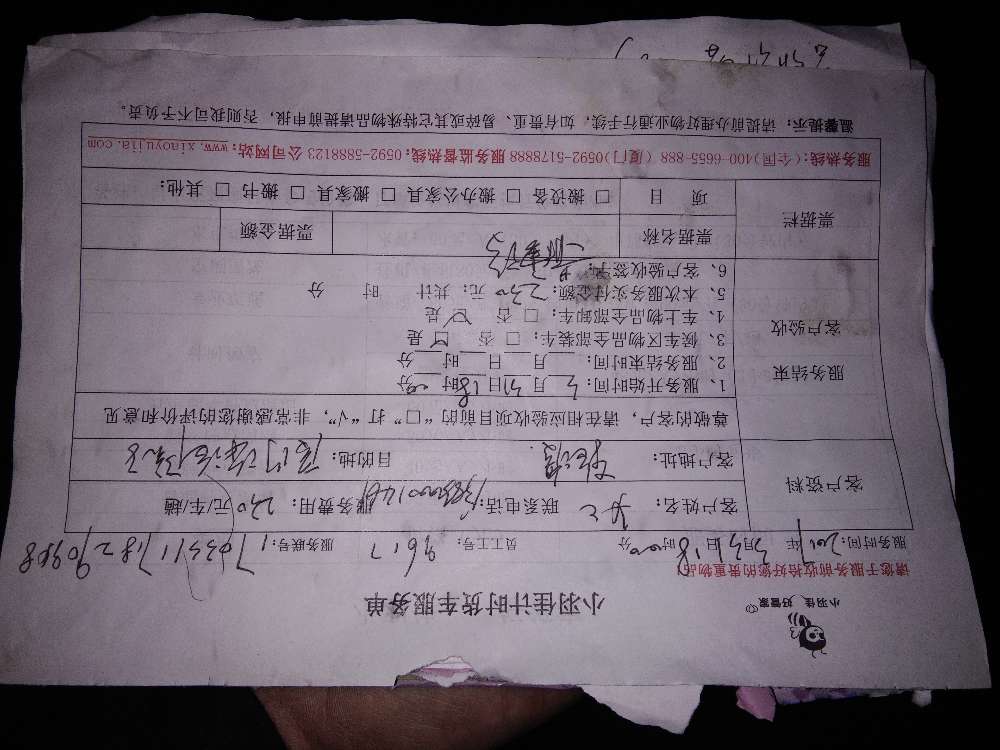 小羽佳 好管家
小羽佳计时货车服务单
请您于服务前收拾好您的贵重物品
服务时间：2017年3月31日18时00分 员工工号：9617 服务联号：
客户资料
客户姓名： 联系电话： 服务费用：230元/车/趟
客户地址： 目的地：
尊敬的客户，请在相应验收项目前的“口”打“√”，非常感谢您的评价和意见
服务结束
客户验收
1、服务开始时间：3月31日18时00分
2、服务结束时间：___月___日___时___分
3、候车区物品全部装车：□ 否 ☑ 是
4、车上物品全部卸车：□ 否 ☑ 是
5、本次服务实付金额：230元；共计 时 分
6、客户验收签字：
票据栏
票据名称 票据金额
项 目 □ 搬设备 □ 搬办公家具 □ 搬家具 □ 搬书 □ 其他：
服务热线：(全国)400-6655-888 (厦门)0592-5178888 服务监督热线：0592-5888123 公司网站：www.xiaoyujia.com
温馨提示：请提前办理好物业通行手续，如有贵重、易碎或其它特殊物品请提前申报，否则我司不予负责。